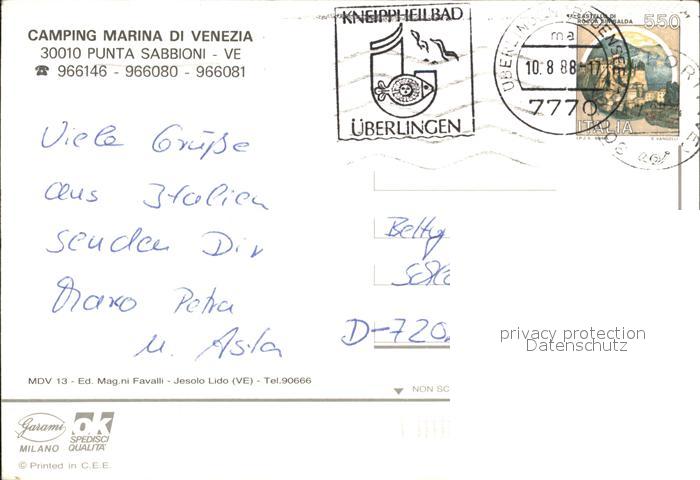 CAMPING MARINA DI VENEZIA
30010 PUNTA SABBIONI - VE
☎ 966146 - 966080 - 966081
KNEIPPHEILBAD
ÜBERLINGEN
10.8.88-17
7770
CASTELLO DI
ROCCA SINIBALDA
550
ITALIA
Viele Grüße
aus Italien
senden Dir
Marco Petra
u. Asta
Betty
D-720
privacy protection
Datenschutz
MDV 13 - Ed. Mag.ni Favalli - Jesolo Lido (VE) - Tel.90666
NON SC
Garami
MILANO
ok
SPEDISCI
QUALITA'
© Printed in C.E.E.